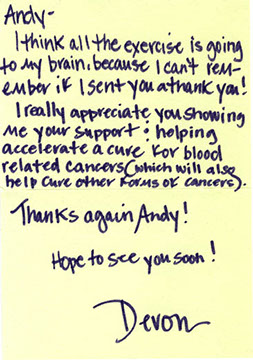 Andy-
I think all the exercise is going
to my brain, because I can't rem-
ember if I sent you a thank you!
I really appreciate you showing
me your support & helping
accelerate a cure for blood
related cancers (which will also
help cure other forms of cancers).
Thanks again Andy!
Hope to see you soon!
Devon